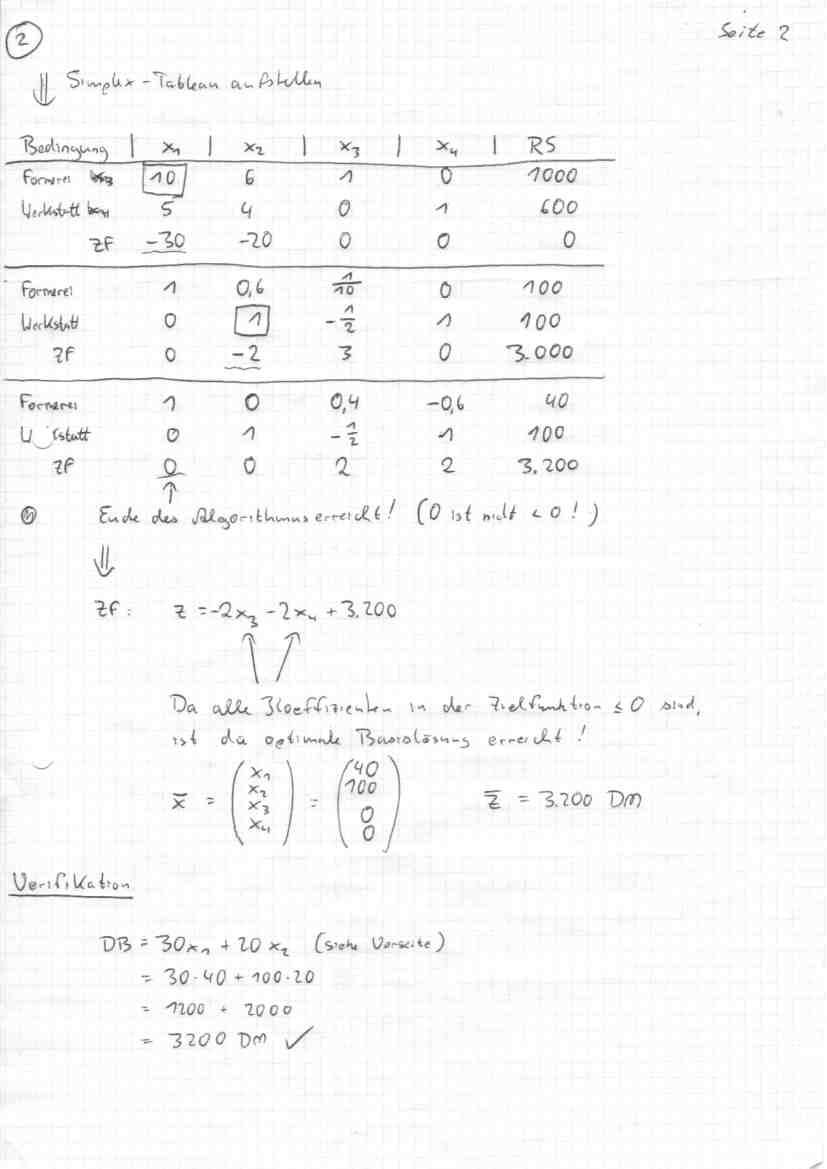 2 Seite 2
⇓ Simplex-Tableau aufstellen
Bedingung | x₁ | x₂ | x₃ | x₄ | RS
Formerei 10 6 1 0 1000
Werkstatt 5 4 0 1 600
ZF -30 -20 0 0 0
Formerei 1 0,6 1/10 0 100
Werkstatt 0 1 -1/2 1 100
ZF 0 -2 3 0 3.000
Formerei 1 0 0,4 -0,6 40
Werkstatt 0 1 -1/2 1 100
ZF 0 0 2 2 3.200
↑
Ende des Algorithmus erreicht! (0 ist nicht < 0!)
⇓
ZF: z = -2x₃ - 2x₄ + 3.200
Da alle Koeffizienten in der Zielfunktion ≤ 0 sind,
ist die optimale Basislösung erreicht!
x̄ = (x₁ x₂ x₃ x₄) = (40 100 0 0) z̄ = 3.200 DM
Verifikation
DB = 30x₁ + 20x₂ (siehe Vorseite)
= 30·40 + 100·20
= 1200 + 2000
= 3200 DM ✓